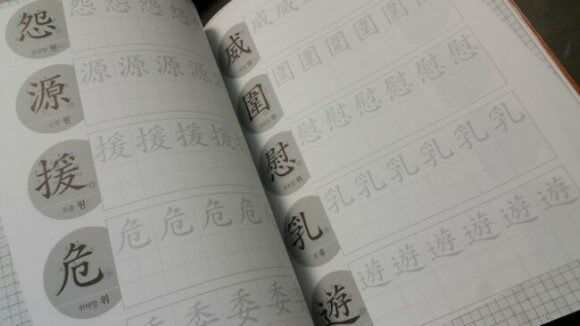 怨 怨 怨 怨 怨
원
源 源 源 源 源
원
援 援 援 援 援
도울 원
危 危 危 危 危
위태할 위
委 委 委
威 威 威 威 威 威 威
위
圍 圍 圍 圍 圍 圍 圍
慰 慰 慰 慰 慰 慰 慰
위로할 위
乳 乳 乳 乳 乳 乳 乳
젖 유
遊 遊 遊 遊 遊 遊 遊